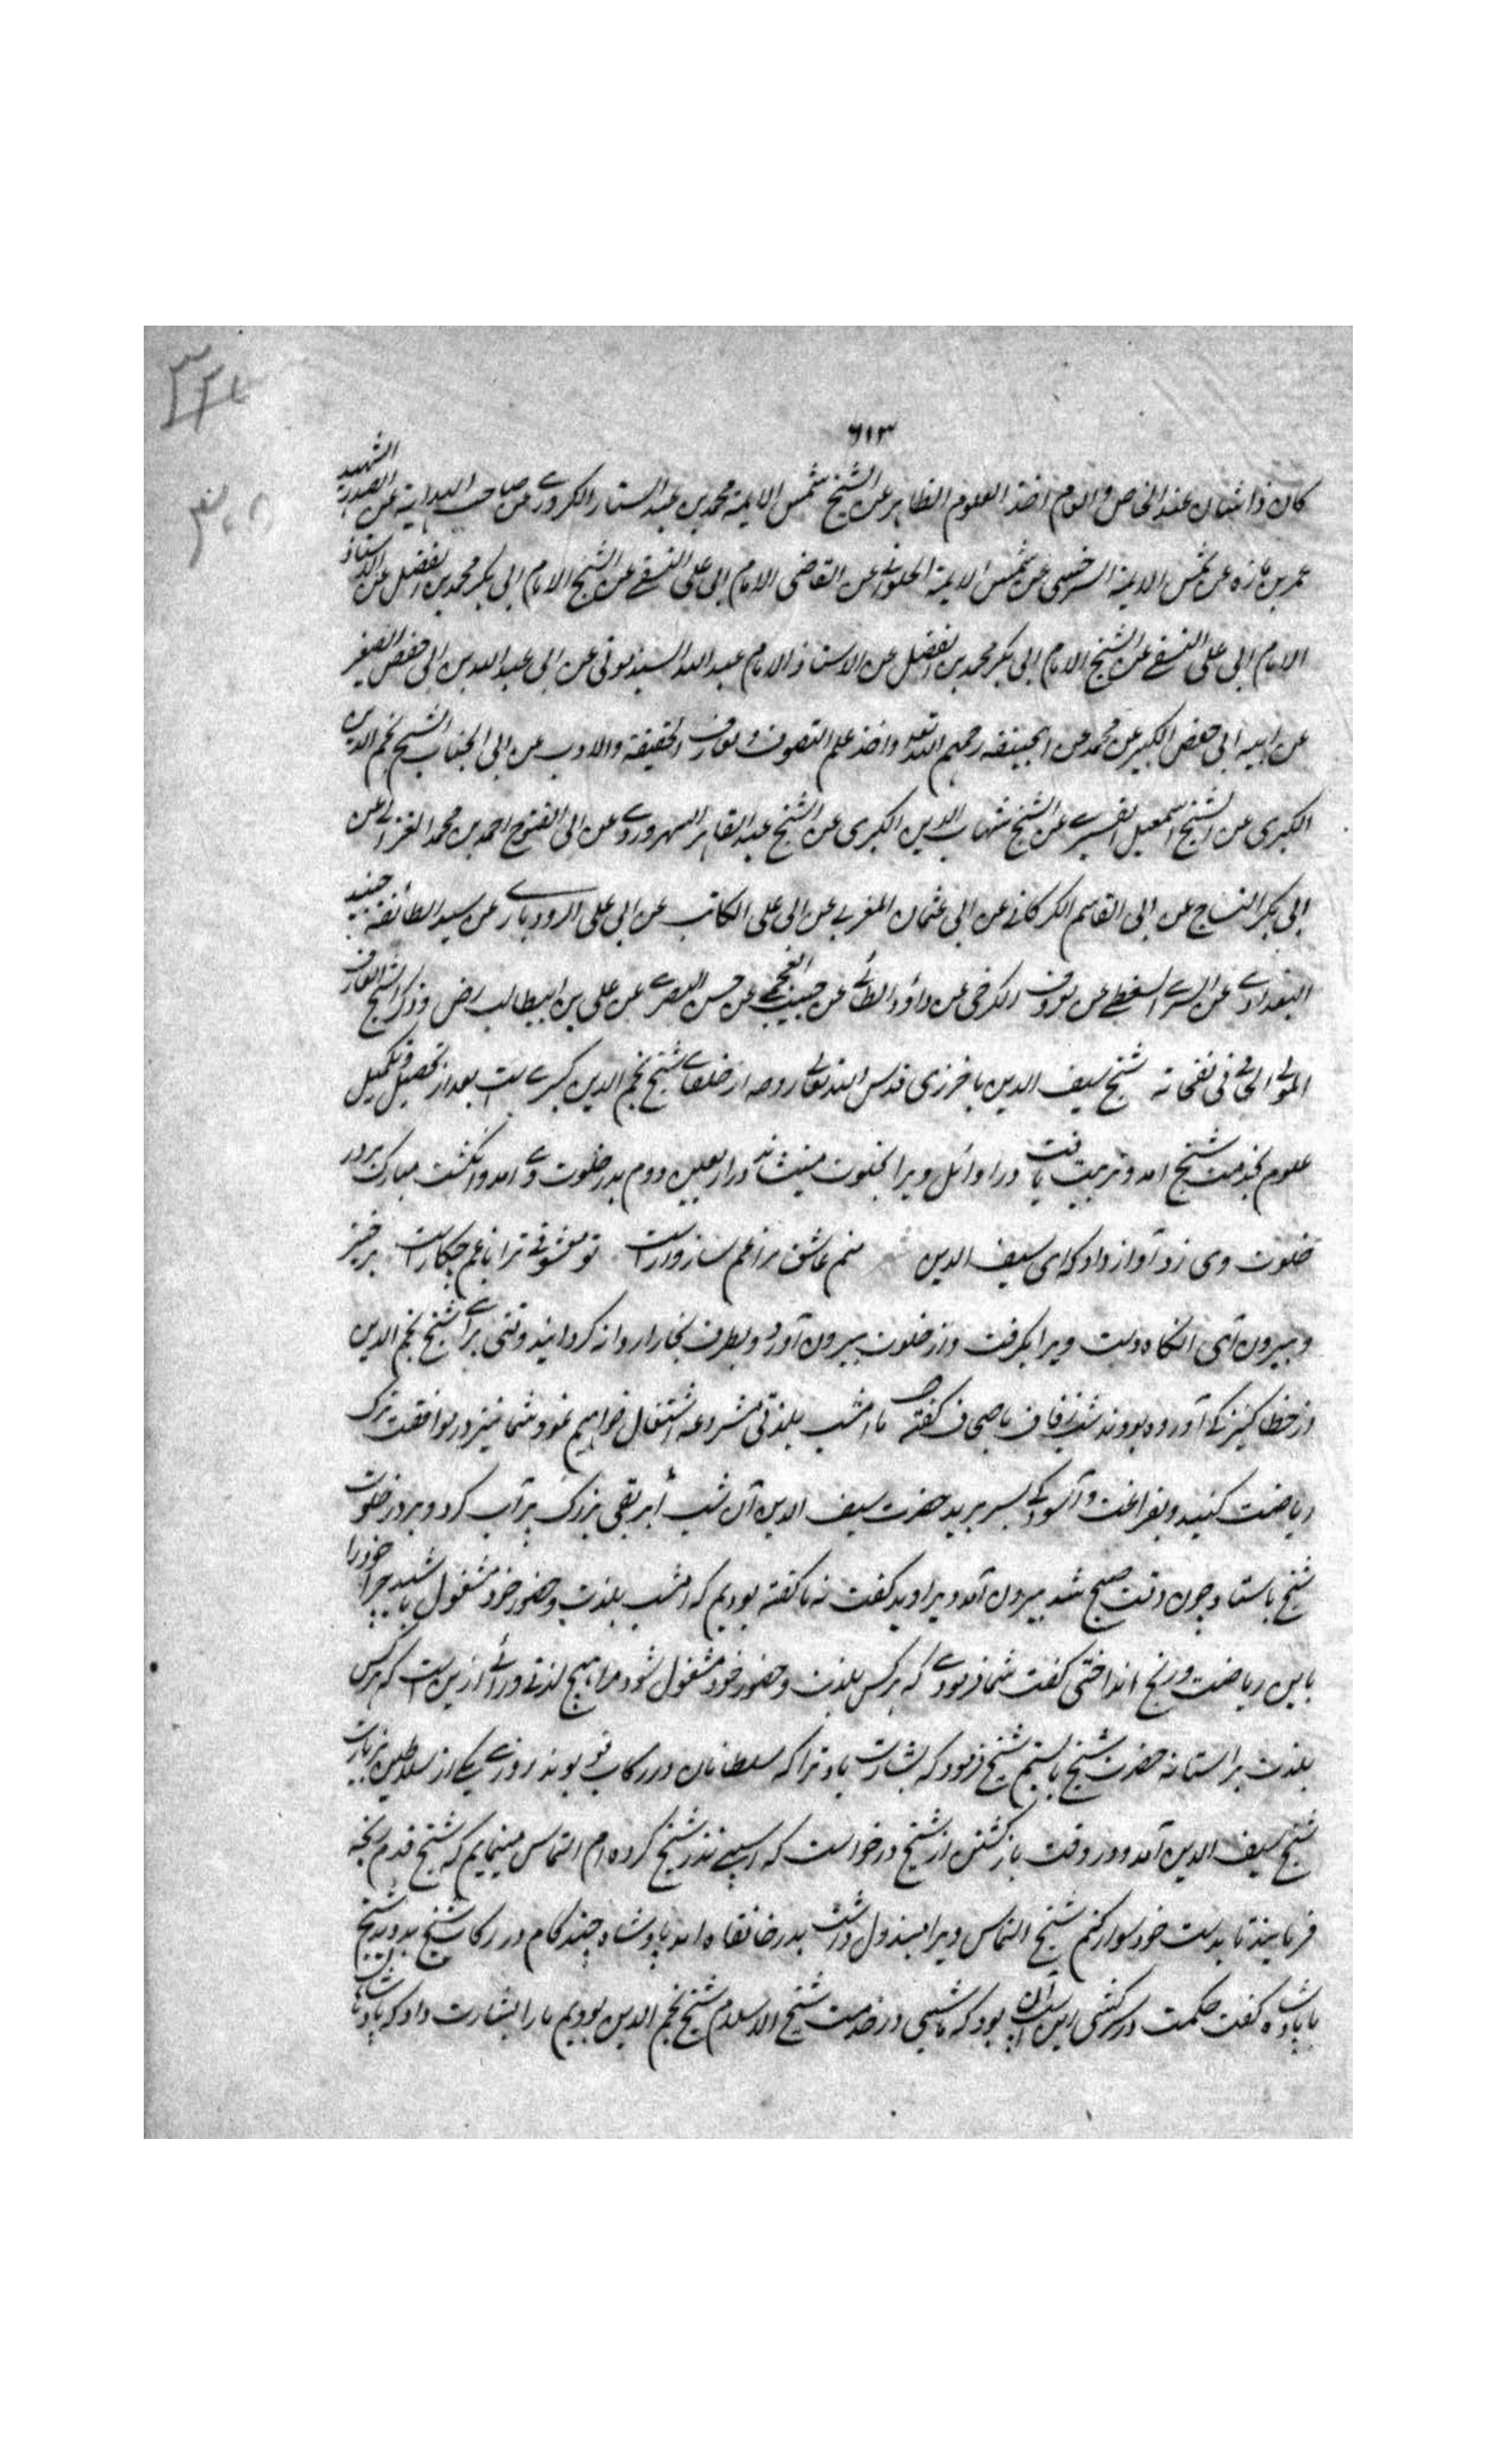 ۶۱۳
کان ذا شان عند الخاص والعام اخذ العلوم الظاهر عن الشیخ شمس الایمة محمد بن عبد الستار الکروری عن صاحب الهدایة عن الصدر الشهید
عمر بن مازه عن شمس الایمة السرخسی عن شمس الایمة الحلوانی عن القاضی الامام ابی علی النسفی عن الشیخ الامام ابی بکر محمد بن الفضل عن الاستاذ
الامام ابی علی النسفی عن الشیخ الامام ابی بکر محمد بن الفضل عن الاستاذ الامام عبد الله السیذمونی عن ابی عبد الله بن ابی حفص الصغیر
عن ابیه ابی حفص الکبیر عن محمد عن ابیحنیفه رحمهم الله تعالی واخذ علم التصوف ومعارف الحقیقة والادب عن ابی الجناب الشیخ نجم الدین
الکبری عن الشیخ اسمعیل القصری عن الشیخ شهاب الدین الکبری عن الشیخ عبد القاهر السهروردی عن ابی الفتوح احمد بن محمد الغزالی عن
ابی بکر النساج عن ابی القاسم الکرکانی عن ابی عثمان المغربی عن ابی علی الکاتب عن ابی علی الرودباری عن سید الطائفه جنید
البغدادی عن السری السقطی عن معروف الکرخی عن داؤد الطائی عن حبیب العجمی عن حسن البصری عن علی بن ابیطالب رض وذکر الشیخ العارف
المولی الجامی فی نفحاته شیخ سیف الدین باخرزی قدس الله تعالی روحه از خلفای شیخ نجم الدین کبری است بعد از تحصیل و تکمیل
علوم بخدمت شیخ امد و تربیت یافت در اوائل ویرا بخلوت مینشاند در اربعین دوم بدر خلوت وی امد و انکشت مبارک بر در
خلوت وی زد و آواز داد که ای سیف الدین منم عاشق مرا غم سازوارست تو معشوقی ترا با غم چکارست برخیز
و بیرون آی انکاه دست ویرا بکرفت و از خلوت بیرون آورد و بطرف بخارا روانه کردانید وقتی برای شیخ نجم الدین
از خطا کنیزکی آورده بودند شب زفاف باصحاب کفته ما امشب بلذتی مشروعه اشتغال خواهیم نمود شما نیز در موافقت ترک
ریاضت کنید و بفراغت و آسودکی بسر برید حضرت سیف الدین آن شب ابریقی بزرک پر آب کرد و بر در خلوت
شیخ باستاد چون وقت صبح شد بیرون آمد ویرا دید کفت نه ما کفته بودیم که امشب بلذت و حضور خود مشغول باشید چرا خود را
باین ریاضت و رنج انداختی کفت شما فرمودی که هر کس بلذت و حضور خود مشغول شود مرا هیچ لذتی ورای ازین نیست که هر کس
بلذت بر استانه حضرت شیخ بایستم شیخ فرمود که بشارت باد ترا که سلطانان در رکاب تو بوند روزی یکی از سلاطین بزیارت
شیخ سیف الدین آمد و در وقت بازکشتن از شیخ درخواست که اسپی نذر شیخ کرده ام التماس مینمایم که شیخ قدم رنجه
فرمایند تا بدست خود سوار کنم شیخ التماس ویرا مبذول داشت بدر خانقاه امد پادشاه چند کام در رکاب شیخ بدوید شیخ
با پادشاه کفت حکمت در سرکشی این اسپ آن بود که ما شبی در خدمت شیخ الاسلام شیخ نجم الدین بودیم ما را بشارت داد که پادشاهان